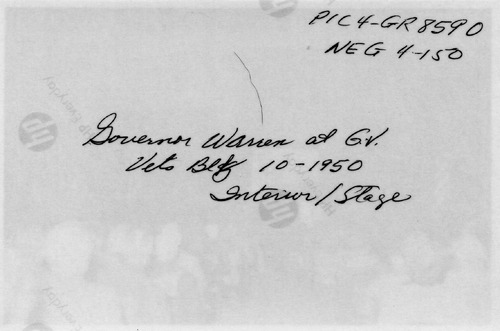 PIC4-GR8590
NEG 4-150
Governor Warren at G.V.
Vets Bldg 10-1950
Interior/Stage